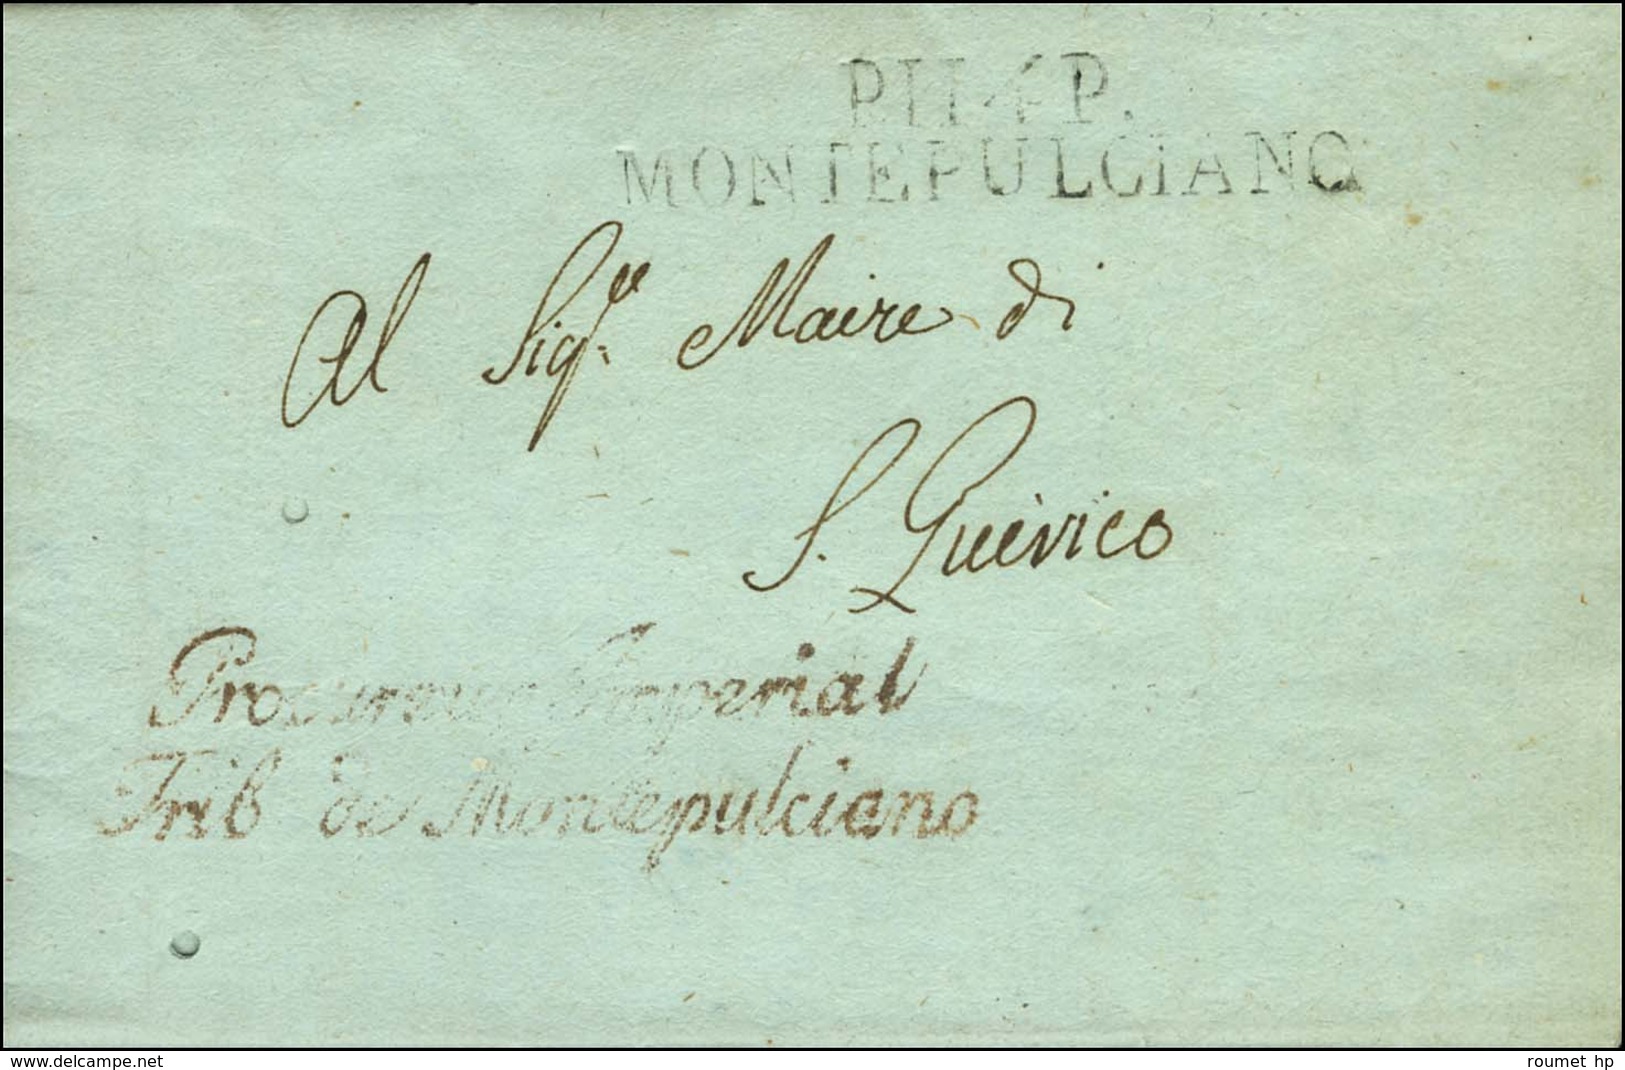 P.114 P.
MONTEPULCIANO
Al Sig.re Maire di
S. Quirico
Procureur Imperial
Trib de Montepulciano
www.delcampe.net
roumet hp